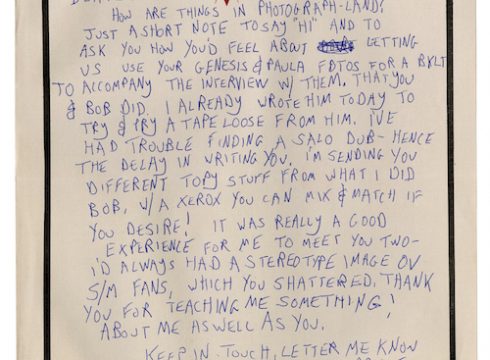 HOW ARE THINGS IN PHOTOGRAPH-LAND?
JUST A SHORT NOTE TO SAY "HI" AND TO
ASK YOU HOW YOU'D FEEL ABOUT LETTING
US USE YOUR GENESIS & PAULA FOTOS FOR A BKLT
TO ACCOMPANY THE INTERVIEW W/ THEM, THAT YOU
& BOB DID. I ALREADY WROTE HIM TODAY TO
TRY & PRY A TAPE LOOSE FROM HIM. I'VE
HAD TROUBLE FINDING A SALO DUB-HENCE
THE DELAY IN WRITING YOU. I'M SENDING YOU
DIFFERENT TOPY STUFF FROM WHAT I DID
BOB, W/A XEROX YOU CAN MIX & MATCH IF
YOU DESIRE! IT WAS REALLY A GOOD
EXPERIENCE FOR ME TO MEET YOU TWO-
I'D ALWAYS HAD A STEREOTYPE IMAGE OV
S/M FANS, WHICH YOU SHATTERED. THANK
YOU FOR TEACHING ME SOMETHING!
ABOUT ME AS WELL AS YOU.
KEEP IN TOUCH, LETTER ME KNOW